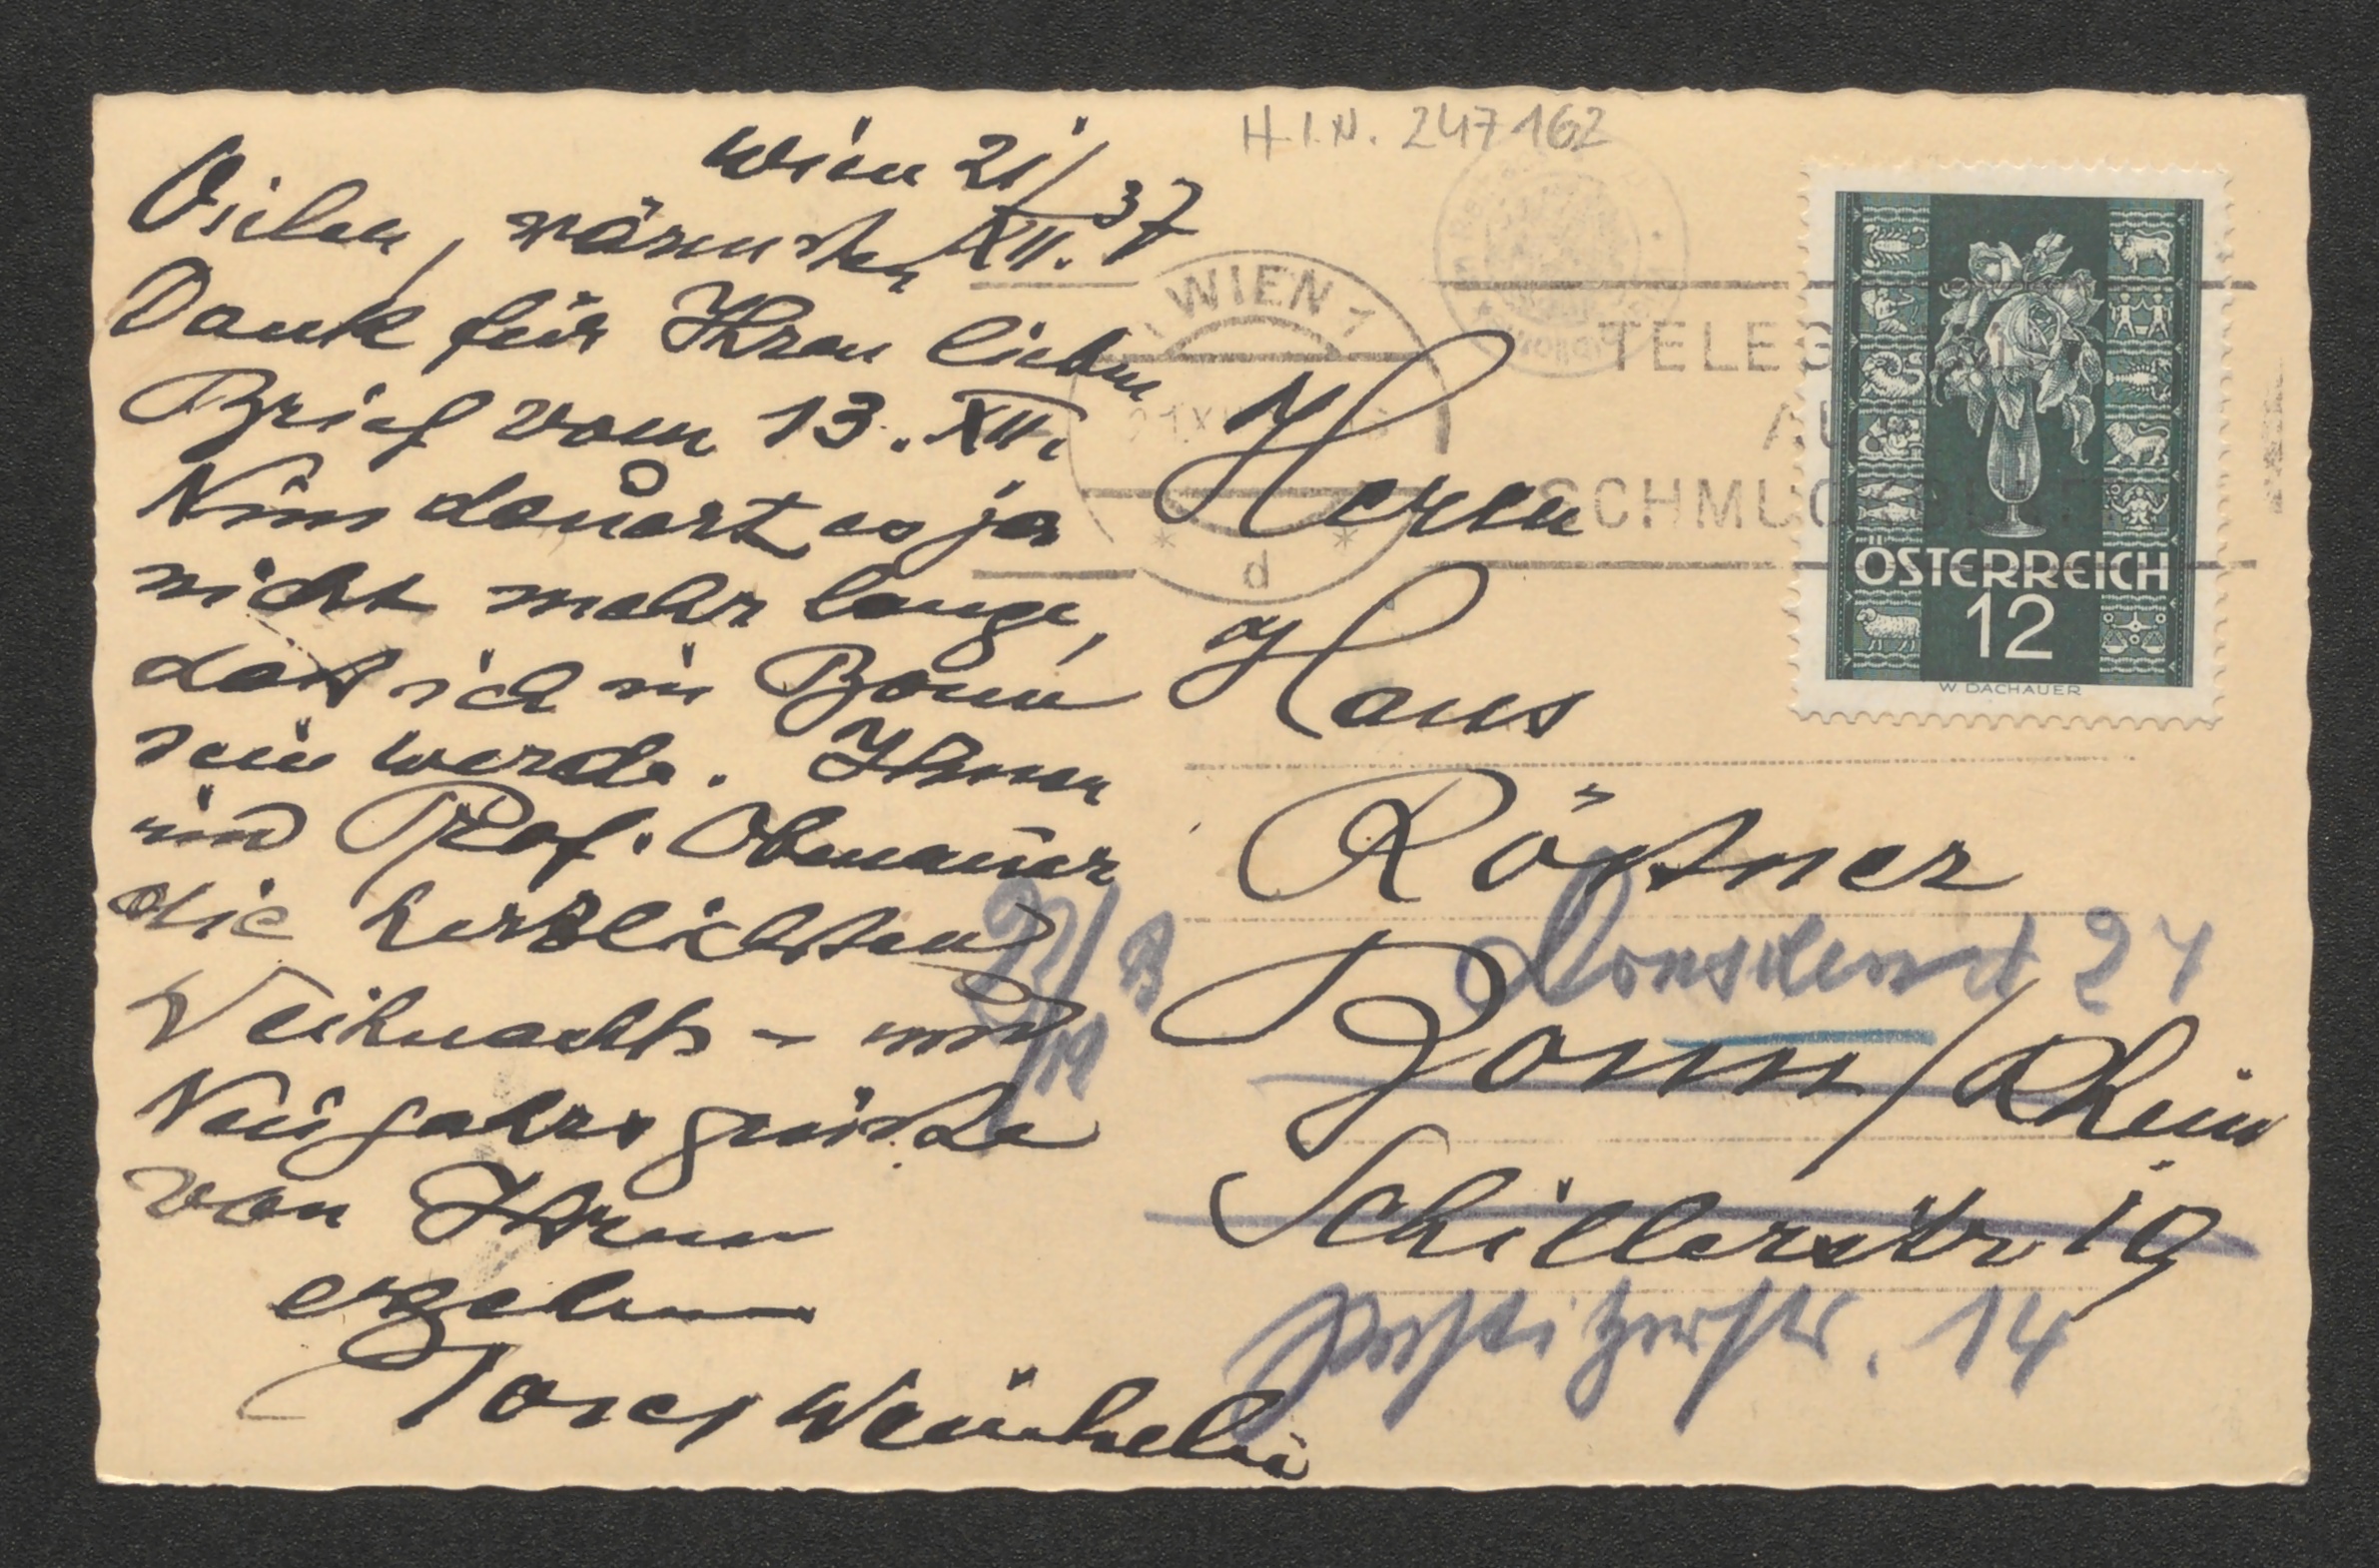 Wien 21/XII. 37
Vielen, wärmsten
Dank für Ihren lieben
Brief vom 13. XII.
Nun dauert es ja
nicht mehr lange,
daß ich in Bonn
sein werde. Ihnen
und Prof. Obenauer
die herzlichsten
Weihnachts- und
Neujahrsgrüße
von Ihrem
ergebenen
Josef Weinheber
H.I.N. 247162
WIEN 1
d
TELEG
AU
SCHMUC
ÖSTERREICH
12
W DACHAUER
Herrn
Hans
Rößner
24
Bonn/Rhein
Schillerstr. 19
14